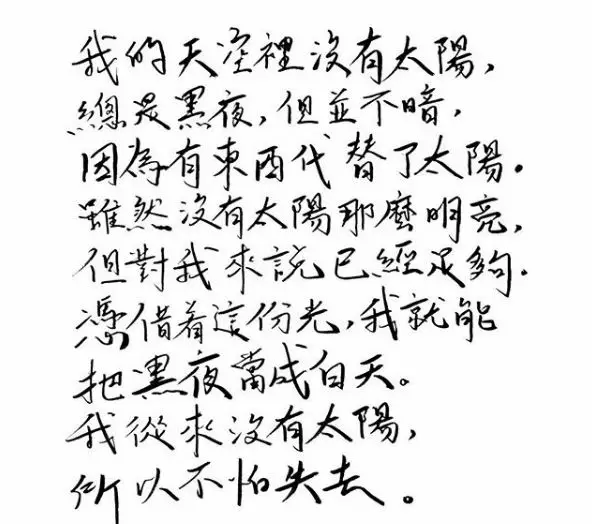 我的天空裡沒有太陽，
總是黑夜，但並不暗，
因為有東西代替了太陽。
雖然沒有太陽那麼明亮，
但對我來說已經足夠。
憑借着這份光，我就能
把黑夜當成白天。
我從來沒有太陽，
所以不怕失去。